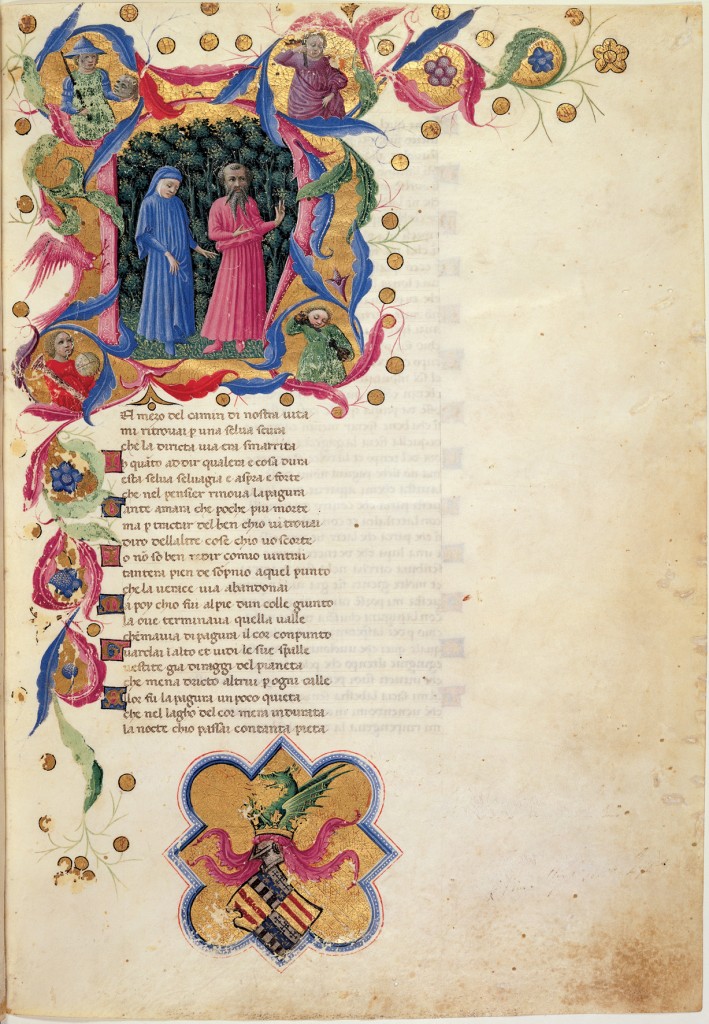 El mezo del camin di nostra uita
mi ritrouai p una selua scura
che la diricta uia era smarrita
o quāto ad dir qualera e cosa dura
esta selua seluagia e aspra e forte
che nel pensier rinoua la pagura
ante amara che poche piu morte
ma p tractar del ben chio ui trouai
diro dellaltre cose chio uo scorte
o nō so ben redir comio uintrai
tantera pien de sopnio aquel punto
che la uerace uia abandonai
a poy chio fui alpie dun colle giunto
la oue terminaua quella ualle
chemauia di pagura il cor conpunto
uardai ī alto et uidi le sue spalle
uestite gia di raggi del pianeta
che mena dricto altrui p ogni calle
lor fu la pagura un poco quieta
che nel lagho del cor mera indurata
la nocte chio passai contanta pieta